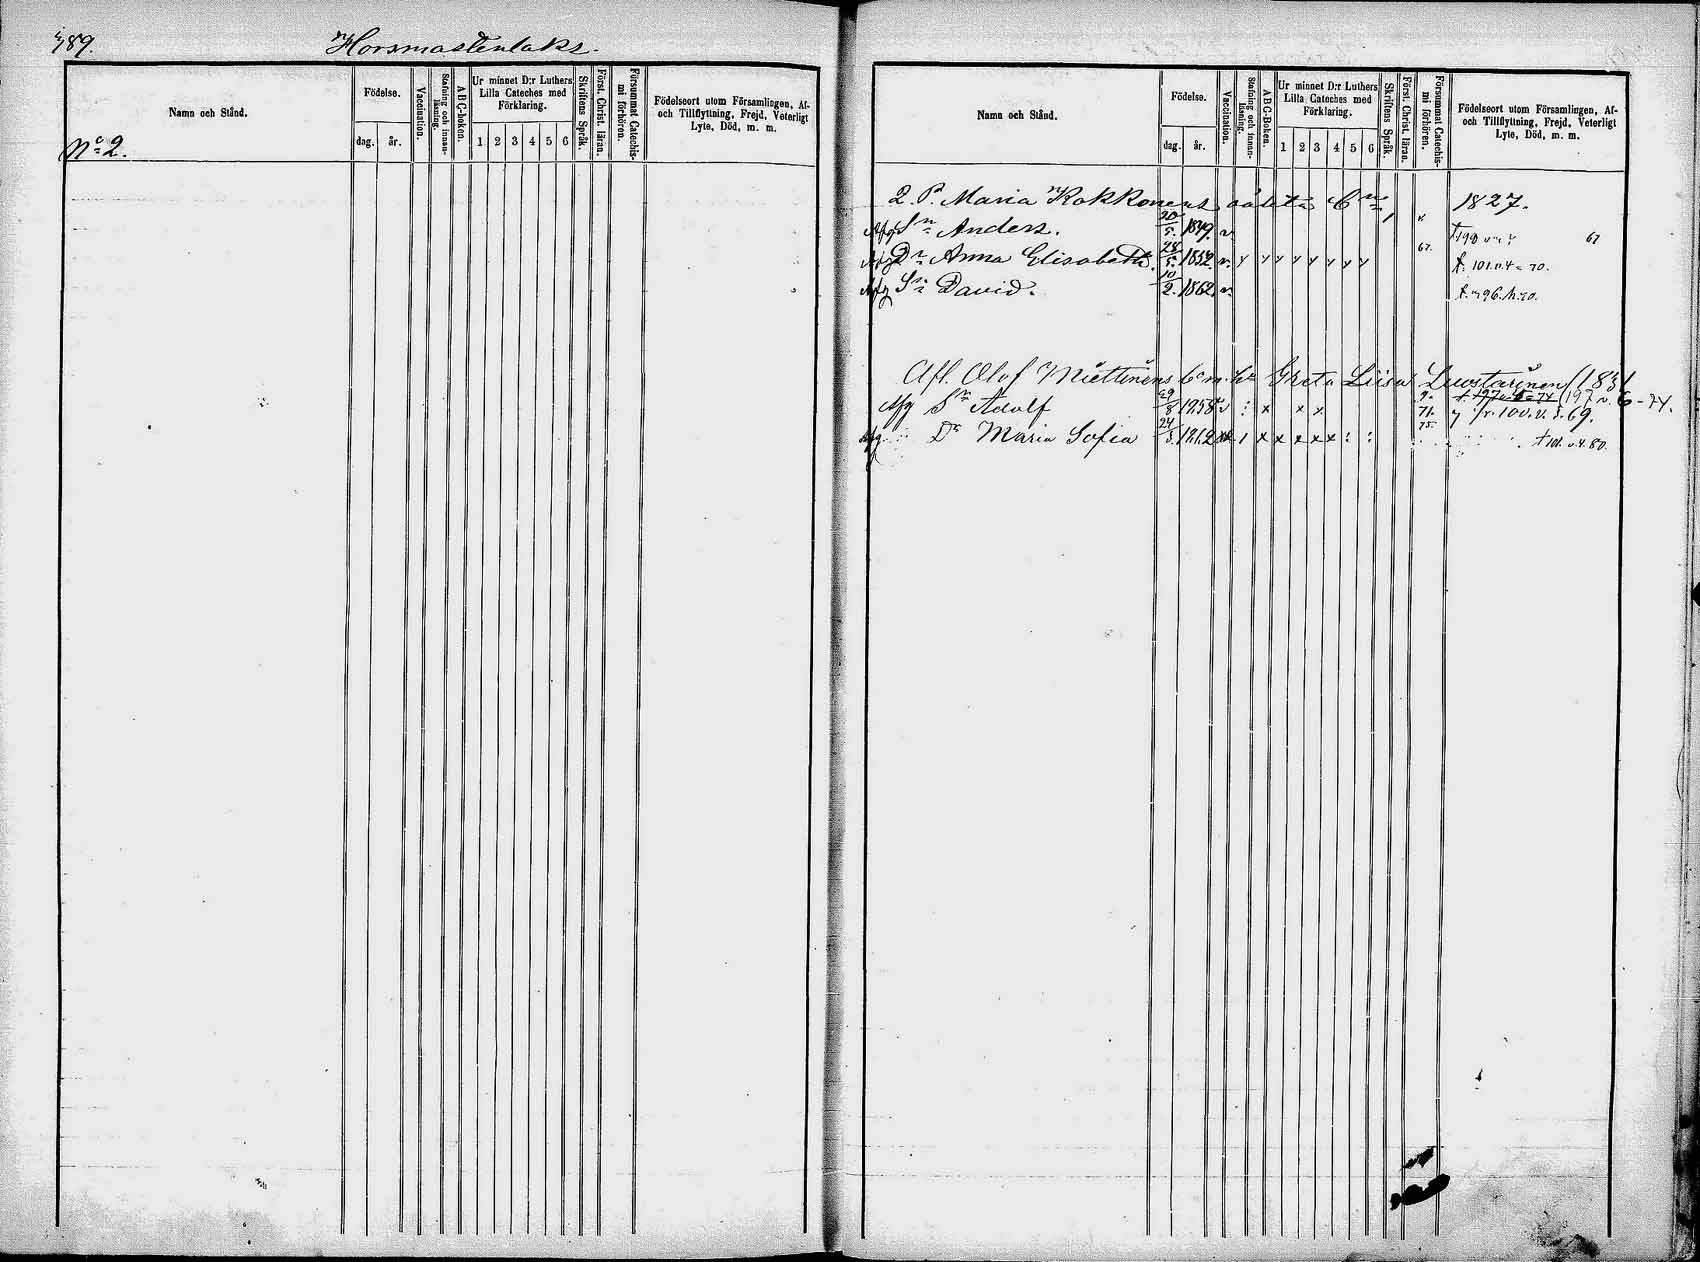 389. Horsmastenlaks.
Namn och Stånd.
Födelse.
dag. år.
Vaccination.
Stafning och innanläsning.
A B C-boken.
Ur minnet D:r Luthers Lilla Cateches med Förklaring.
1 2 3 4 5 6
Skriftens Språk.
Först. Christ. läran.
Försummat Catechismi förhören.
Födelseort utom Församlingen, Af- och Tillflyttning, Frejd, Veterligt Lyte, Död, m. m.
No 2.
Namn och Stånd.
Födelse.
dag. år.
Vaccination.
Stafning och innanläsning.
A B C-Boken.
Ur minnet D:r Luthers Lilla Cateches med Förklaring.
1 2 3 4 5 6
Skriftens Språk.
Först. Christ. läran.
Försummat Catechismi förhören.
Födelseort utom Församlingen, Af- och Tillflyttning, Frejd, Veterligt Lyte, Död, m. m.
2. P. Maria Kokkonens oäkta 1827.
Sn Anders. 20/5. 1849. v. 67
Dr Anna Elisabeth. 28/5. 1852. v. 67. f. 101. v. 4 = 70.
Sn David. 10/2. 1862. v. f. 96. h. 70.
Afl. Olof Miettinens Greta Liisa Luostarinen (1831
Sn Adolf 29/8 1858 v x x x 71. 100. v. 69.
Dr Maria Sofia 24/5. 1862 x x x x x 75. 101. v. 4. 80.